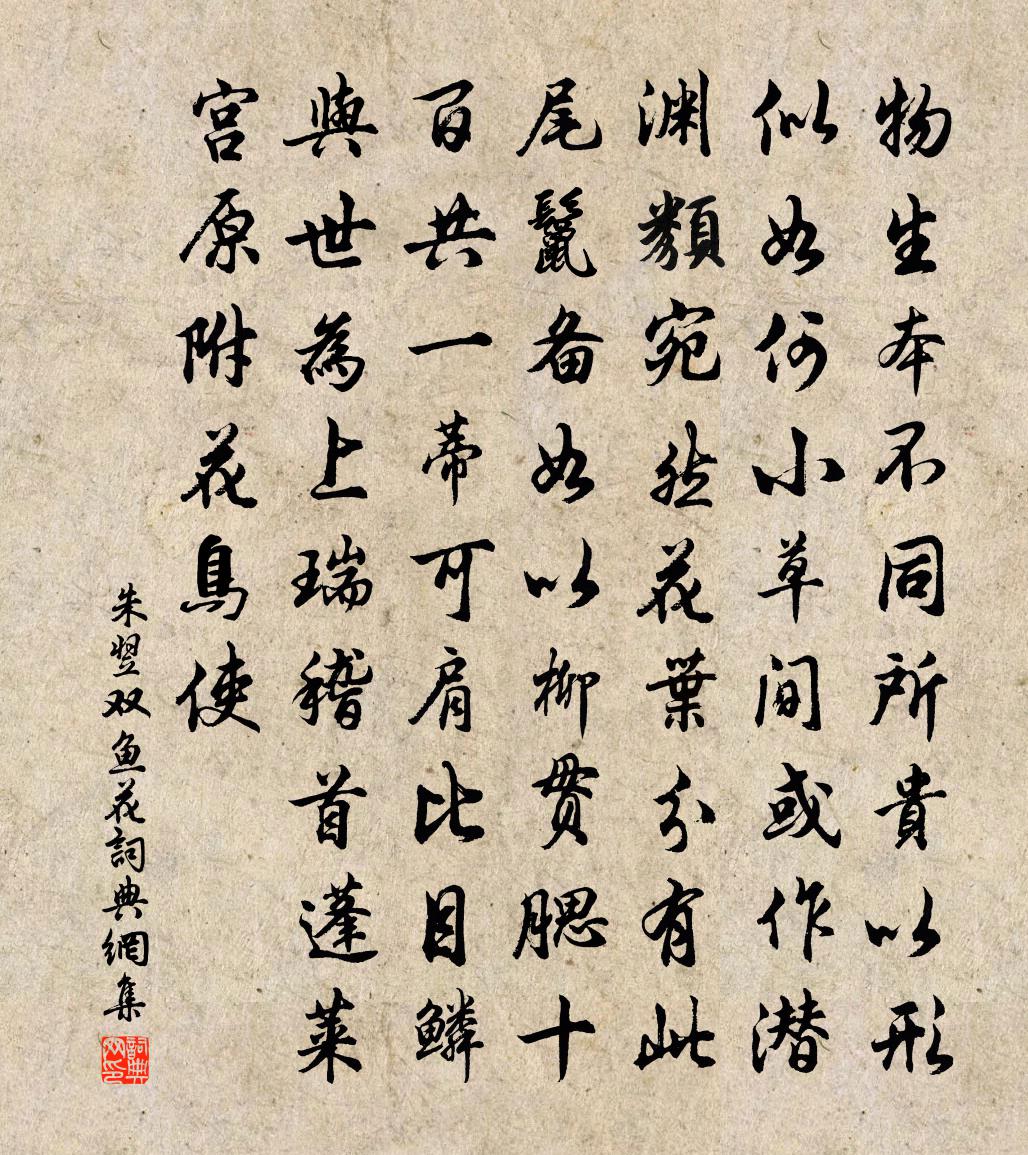 物生本不同所貴以形
似如何小草間或作潜
渊類宛然花葉分有此
尾鬣备如以柳贯腮十
百共一蒂可肩比目鳞
與世為上瑞稽首蓬莱
宫原附花鳥使
朱翌双鱼花詞典網集
詞典网印